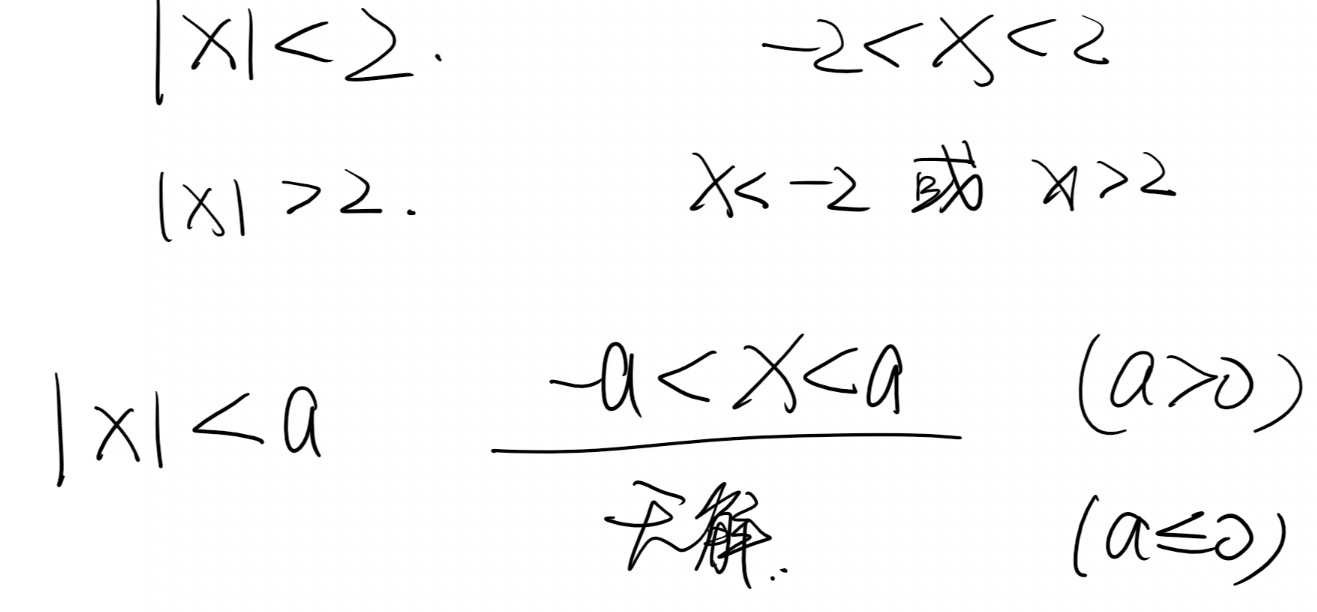 |x|<2. -2<x<2
|x|>2. x<-2 或 x>2
|x|<a -a<x<a (a>0)
无解. (a≤0)